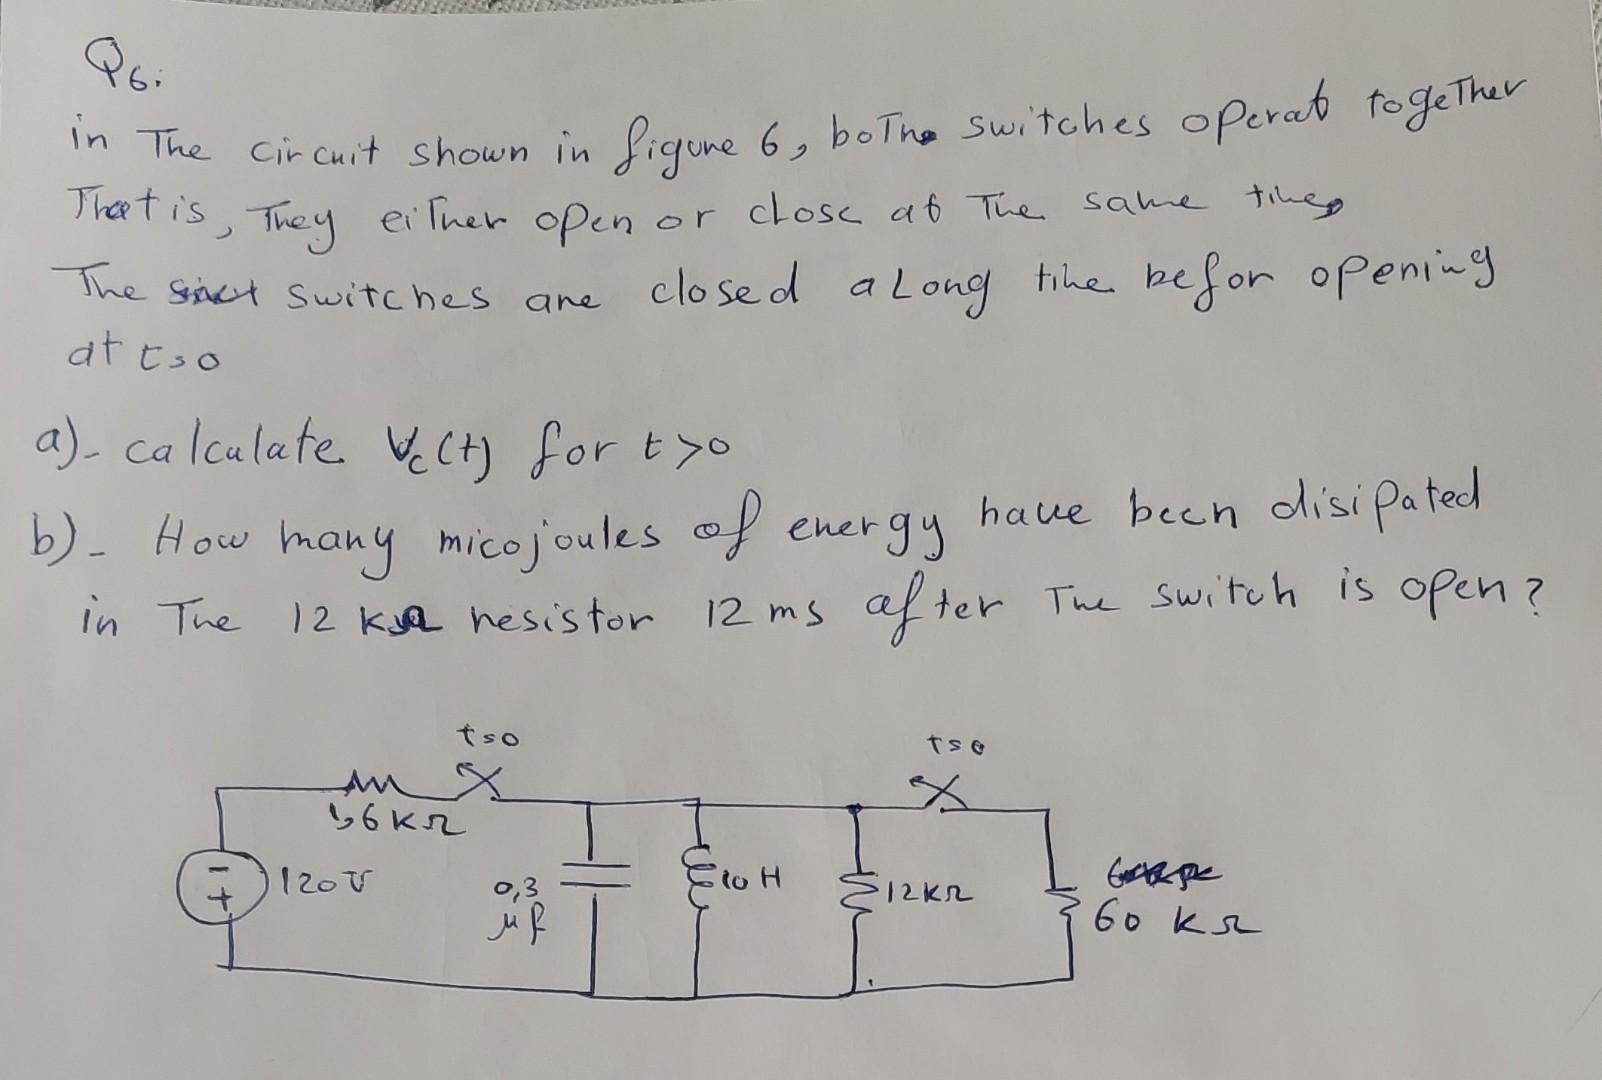 Q6:
in The circuit shown in figure 6, both switches operat together
That is, They either open or close at The same time,
The switches are closed a Long time befor opening
at t=0
a)- calculate Vc(t) for t>0
b)- How many micojoules of energy have been disipated
in The 12 kΩ resistor 12 ms after The switch is open?
t=0
t=0
kΩ
- + 120 V
0,3
μf
10 H
12kΩ
60 kΩ